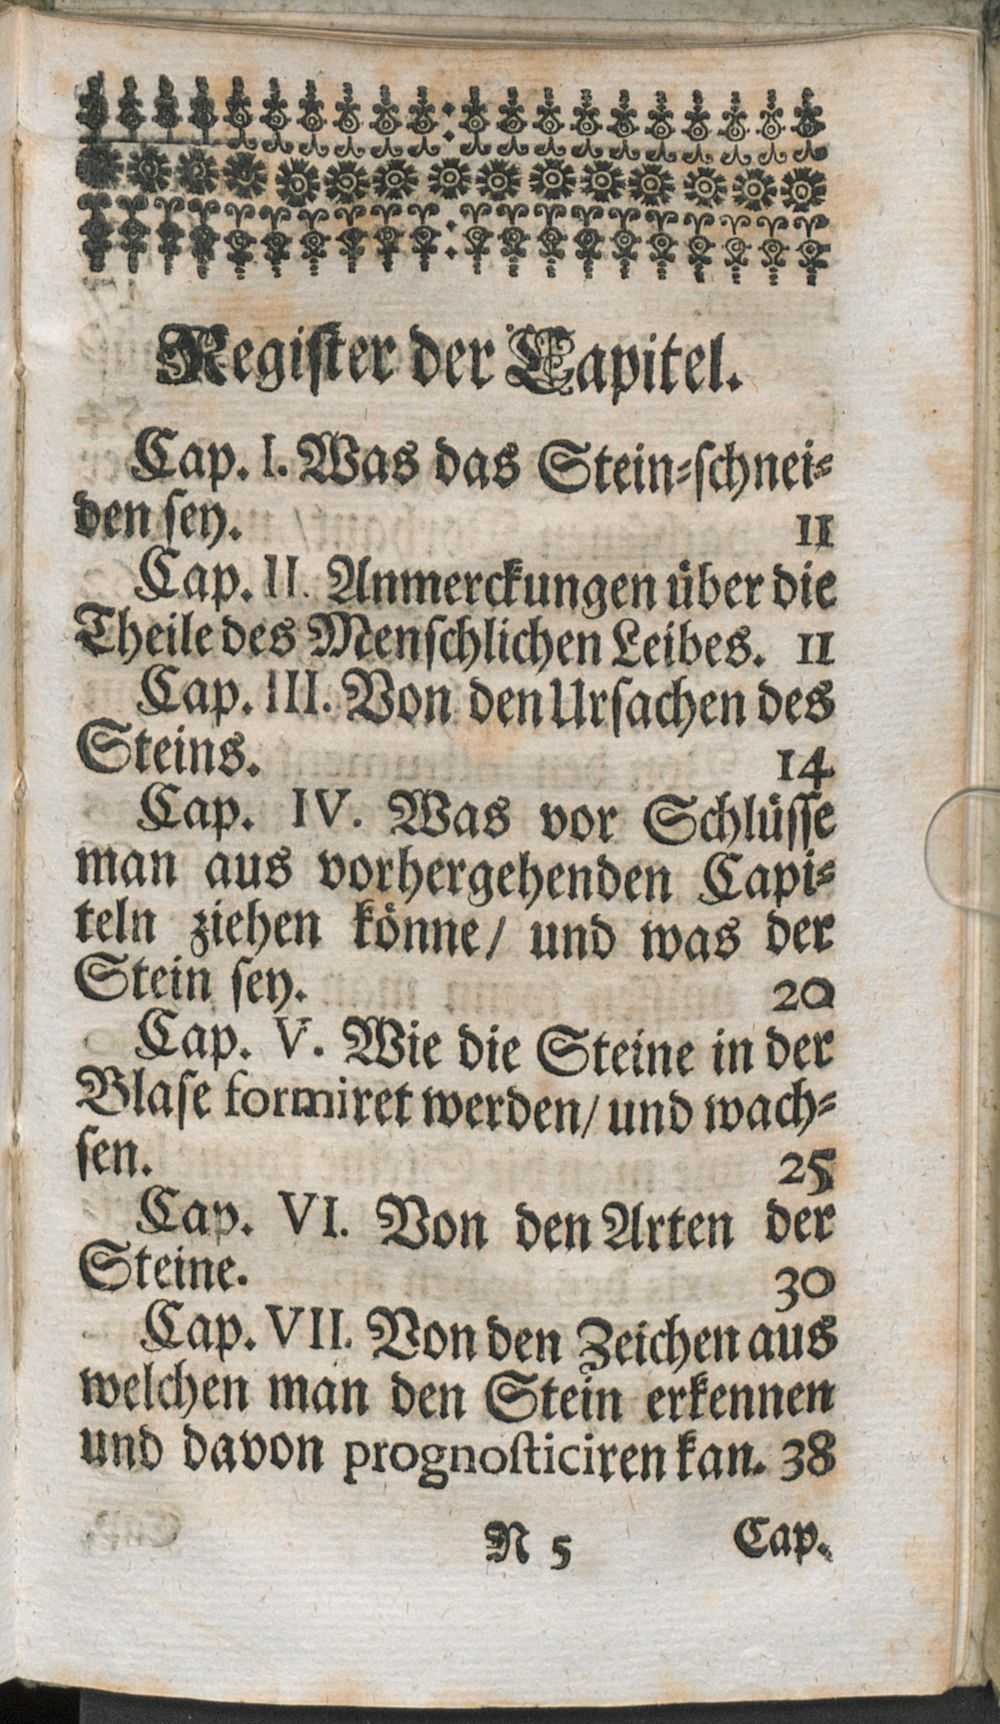 Register der Capitel.
Cap. I. Was das Stein-schnei-
den sey. 11
Cap. II. Anmerckungen über die
Theile des Menschlichen Leibes. 11
Cap. III. Von den Ursachen des
Steins. 14
Cap. IV. Was vor Schlüsse
man aus vorhergehenden Capi-
teln ziehen könne/ und was der
Stein sey. 20
Cap. V. Wie die Steine in der
Blase formiret werden/ und wach-
sen. 25
Cap. VI. Von den Arten der
Steine. 30
Cap. VII. Von den Zeichen aus
welchen man den Stein erkennen
und davon prognosticiren kan. 38
N 5 Cap.